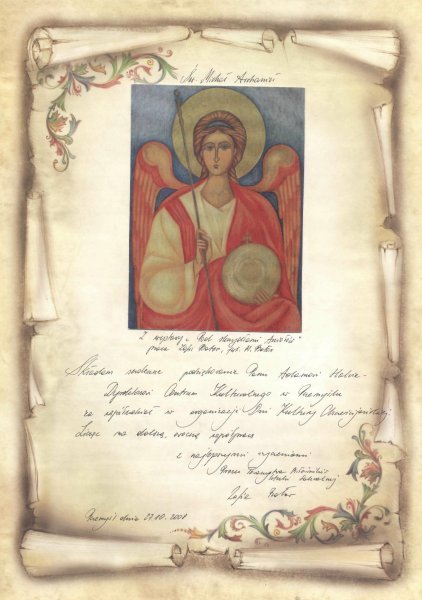 Św. Michał Archanioł
Z wystawy „Pod skrzydłami Aniołów"
praca Zofii Bator, fot. M. Bator
Składam serdeczne podziękowania Panu
Dyrektorowi Centrum Kulturalnego w Przemyślu
za współudział w organizacji Dni Kultury Chrześcijańskiej
Licząc na dalszą, owocną współpracę
z najlepszymi życzeniami
Prezes Towarzystwa Miłośników
Zofia Bator
Przemyśl dnia 27.10.2008